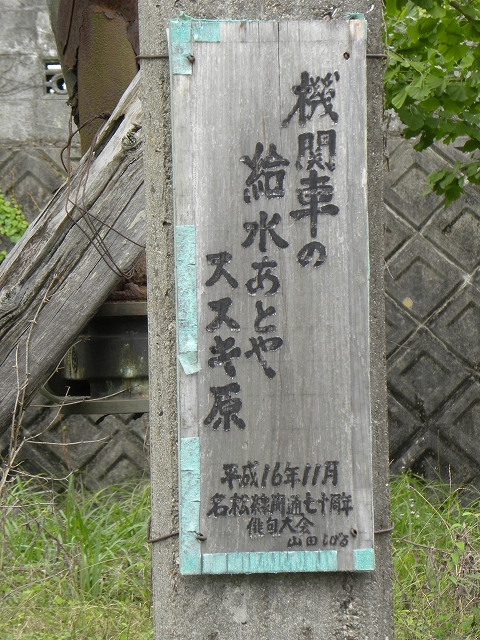 機関車の
給水あとや
ススキ原
平成16年11月
名松線開通七十周年
俳句大会
山田しげる